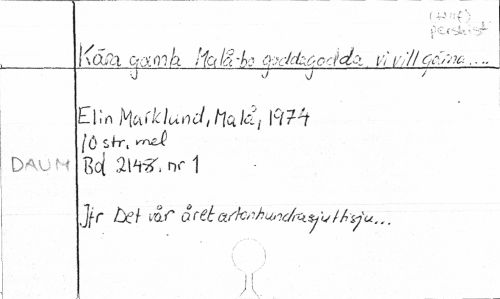 persvist
Kära gamla Malå-bo goddagodda, vi vill gärna....
Elin Marklund, Malå, 1974
10 str, mel
DAUM Bd 2148. nr 1
Jfr Det var året artonhundrasjuttisju...